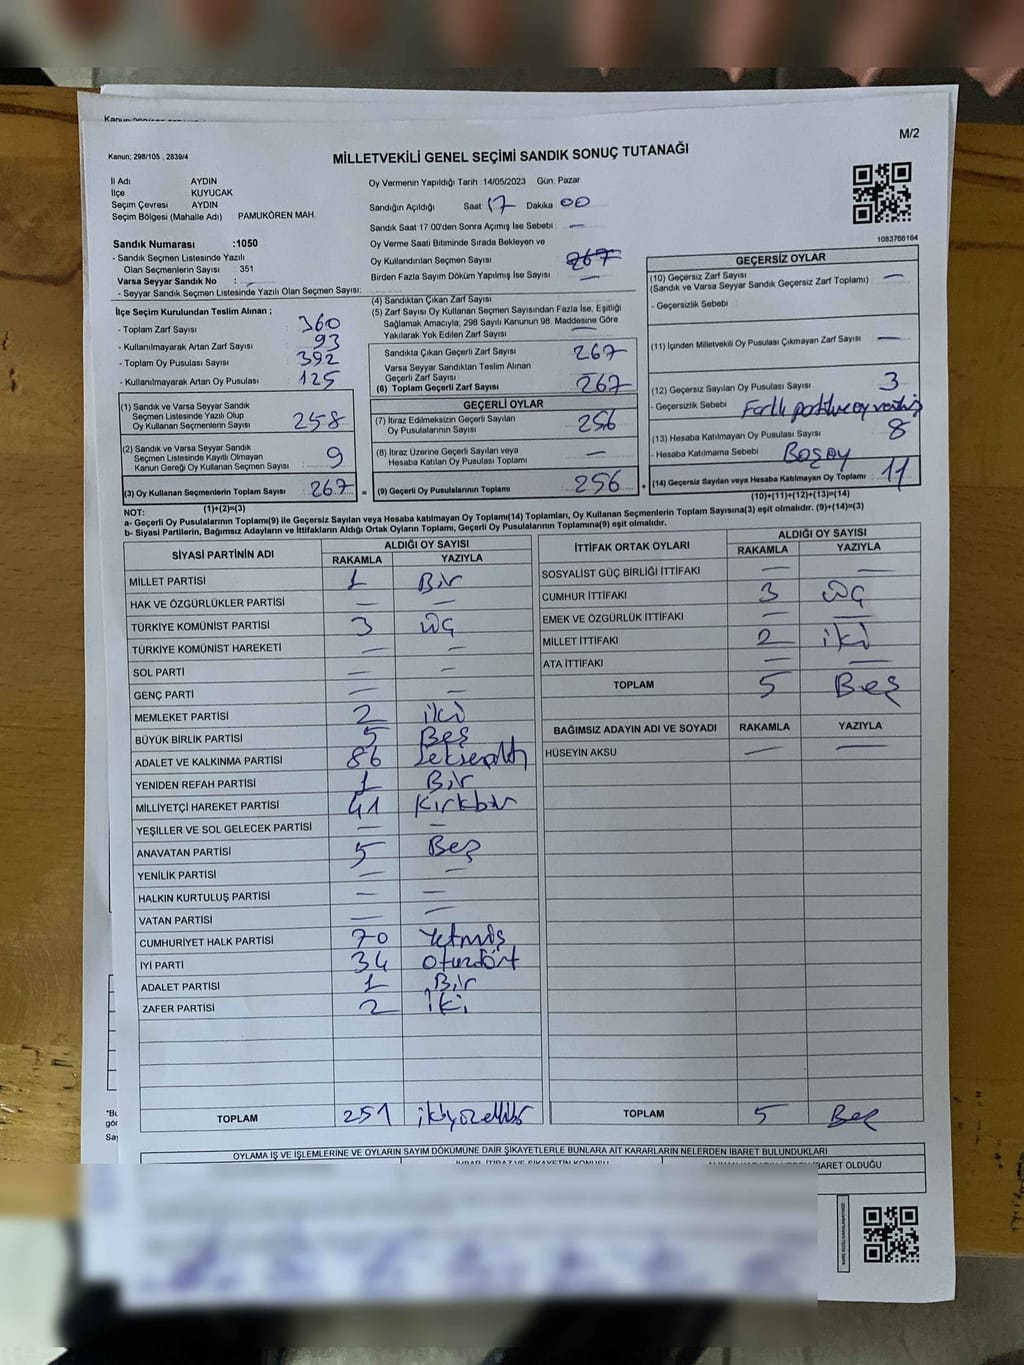 Kanun; 298/105 , 2839/4
M/2
MİLLETVEKİLİ GENEL SEÇİMİ SANDIK SONUÇ TUTANAĞI
İl Adı AYDIN
İlçe KUYUCAK
Seçim Çevresi AYDIN
Seçim Bölgesi (Mahalle Adı) PAMUKÖREN MAH.
Sandık Numarası :1050
- Sandık Seçmen Listesinde Yazılı
Olan Seçmenlerin Sayısı : 351
Varsa Seyyar Sandık No :
- Seyyar Sandık Seçmen Listesinde Yazılı Olan Seçmen Sayısı:
Oy Vermenin Yapıldığı Tarih :14/05/2023 Gün: Pazar
Sandığın Açıldığı Saat 17 Dakika 00
Sandık Saat 17:00'den Sonra Açılmış İse Sebebi —
Oy Verme Saati Bitiminde Sırada Bekleyen ve
Oy Kullandırılan Seçmen Sayısı 267
Birden Fazla Sayım Döküm Yapılmış İse Sayısı —
1083766164
İlçe Seçim Kurulundan Teslim Alınan ;
- Toplam Zarf Sayısı 360
- Kullanılmayarak Artan Zarf Sayısı 93
- Toplam Oy Pusulası Sayısı 392
- Kullanılmayarak Artan Oy Pusulası 125
(1) Sandık ve Varsa Seyyar Sandık
Seçmen Listesinde Yazılı Olup
Oy Kullanan Seçmenlerin Sayısı 258
(2) Sandık ve Varsa Seyyar Sandık
Seçmen Listesinde Kayıtlı Olmayan
Kanun Gereği Oy Kullanan Seçmen Sayısı 9
(3) Oy Kullanan Seçmenlerin Toplam Sayısı 267 =
(1)+(2)=(3)
(4) Sandıktan Çıkan Zarf Sayısı
(5) Zarf Sayısı Oy Kullanan Seçmen Sayısından Fazla İse, Eşitliği
Sağlamak Amacıyla; 298 Sayılı Kanunun 98. Maddesine Göre
Yakılarak Yok Edilen Zarf Sayısı —
Sandıkta Çıkan Geçerli Zarf Sayısı 267
Varsa Seyyar Sandıktan Teslim Alınan
Geçerli Zarf Sayısı
(6) Toplam Geçerli Zarf Sayısı 267
GEÇERLİ OYLAR
(7) İtiraz Edilmeksizin Geçerli Sayılan
Oy Pusulalarının Sayısı 256
(8) İtiraz Üzerine Geçerli Sayılan veya
Hesaba Katılan Oy Pusulası Toplamı —
(9) Geçerli Oy Pusulalarının Toplamı 256 +
GEÇERSİZ OYLAR
(10) Geçersiz Zarf Sayısı —
(Sandık ve Varsa Seyyar Sandık Geçersiz Zarf Toplamı)
- Geçersizlik Sebebi
(11) İçinden Milletvekili Oy Pusulası Çıkmayan Zarf Sayısı —
(12) Geçersiz Sayılan Oy Pusulası Sayısı 3
- Geçersizlik Sebebi
(13) Hesaba Katılmayan Oy Pusulası Sayısı 8
- Hesaba Katılmama Sebebi Boş oy
(14) Geçersiz Sayılan veya Hesaba Katılmayan Oy Toplamı 11
(10)+(11)+(12)+(13)=(14)
NOT:
a- Geçerli Oy Pusulalarının Toplamı(9) ile Geçersiz Sayılan veya Hesaba katılmayan Oy Toplamı(14) Toplamları, Oy Kullanan Seçmenlerin Toplam Sayısına(3) eşit olmalıdır. (9)+(14)=(3)
b- Siyasi Partilerin, Bağımsız Adayların ve İttifakların Aldığı Ortak Oyların Toplamı, Geçerli Oy Pusulalarının Toplamına(9) eşit olmalıdır.
SİYASİ PARTİNİN ADI ALDIĞI OY SAYISI
RAKAMLA YAZIYLA
MİLLET PARTİSİ 1 Bir
HAK VE ÖZGÜRLÜKLER PARTİSİ — —
TÜRKİYE KOMÜNİST PARTİSİ 3 üç
TÜRKİYE KOMÜNİST HAREKETİ — —
SOL PARTİ — —
GENÇ PARTİ — —
MEMLEKET PARTİSİ 2 iki
BÜYÜK BİRLİK PARTİSİ 5 Beş
ADALET VE KALKINMA PARTİSİ 86 Seksenaltı
YENİDEN REFAH PARTİSİ 1 Bir
MİLLİYETÇİ HAREKET PARTİSİ 41 Kırkbir
YEŞİLLER VE SOL GELECEK PARTİSİ — —
ANAVATAN PARTİSİ 5 Beş
YENİLİK PARTİSİ — —
HALKIN KURTULUŞ PARTİSİ — —
VATAN PARTİSİ — —
CUMHURİYET HALK PARTİSİ 70 Yetmiş
İYİ PARTİ 34 otuzdört
ADALET PARTİSİ 1 Bir
ZAFER PARTİSİ 2 iki
TOPLAM 251 ikiyüzellibir
İTTİFAK ORTAK OYLARI ALDIĞI OY SAYISI
RAKAMLA YAZIYLA
SOSYALİST GÜÇ BİRLİĞİ İTTİFAKI — —
CUMHUR İTTİFAKI 3 üç
EMEK VE ÖZGÜRLÜK İTTİFAKI — —
MİLLET İTTİFAKI 2 iki
ATA İTTİFAKI — —
TOPLAM 5 Beş
BAĞIMSIZ ADAYIN ADI VE SOYADI RAKAMLA YAZIYLA
HÜSEYİN AKSU — —
TOPLAM 5 Beş
OYLAMA İŞ VE İŞLEMLERİNE VE OYLARIN SAYIM DÖKÜMÜNE DAİR ŞİKAYETLERLE BUNLARA AİT KARARLARIN NELERDEN İBARET BULUNDUKLARI